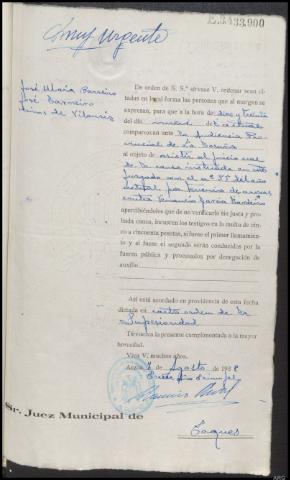 E.3433.900
Muy Urgente
José María Barreiro
José Barreiro
De orden de S. Sª sírvase V. ordenar sean ci-
tadas en legal forma las personas que al margen se
expresan, para que a la hora de diez y treinta
del día
comparezcan ante la Audiencia Pro-
vincial de La Coruña
al objeto de asistir al juicio oral
de la causa instruida en este
Juzgado con el nº 55 del año
actual, por tenencia de armas
contra
apercibiéndoles que de no verificarlo sin justa y pro-
bada causa, incurren los testigos en la multa de cin-
co a cincuenta pesetas, si fuese el primer llamamien-
to y si fuese el segundo serán conducidos por la
fuerza pública y procesados por denegación de
auxilio
Así está acordado en providencia de esta fecha
dictada en carta orden de la
Superioridad
Devuelva la presente cumplimentada a la mayor
brevedad.
Viva V. muchos años.
de Agosto de 1938
Sr. Juez Municipal de